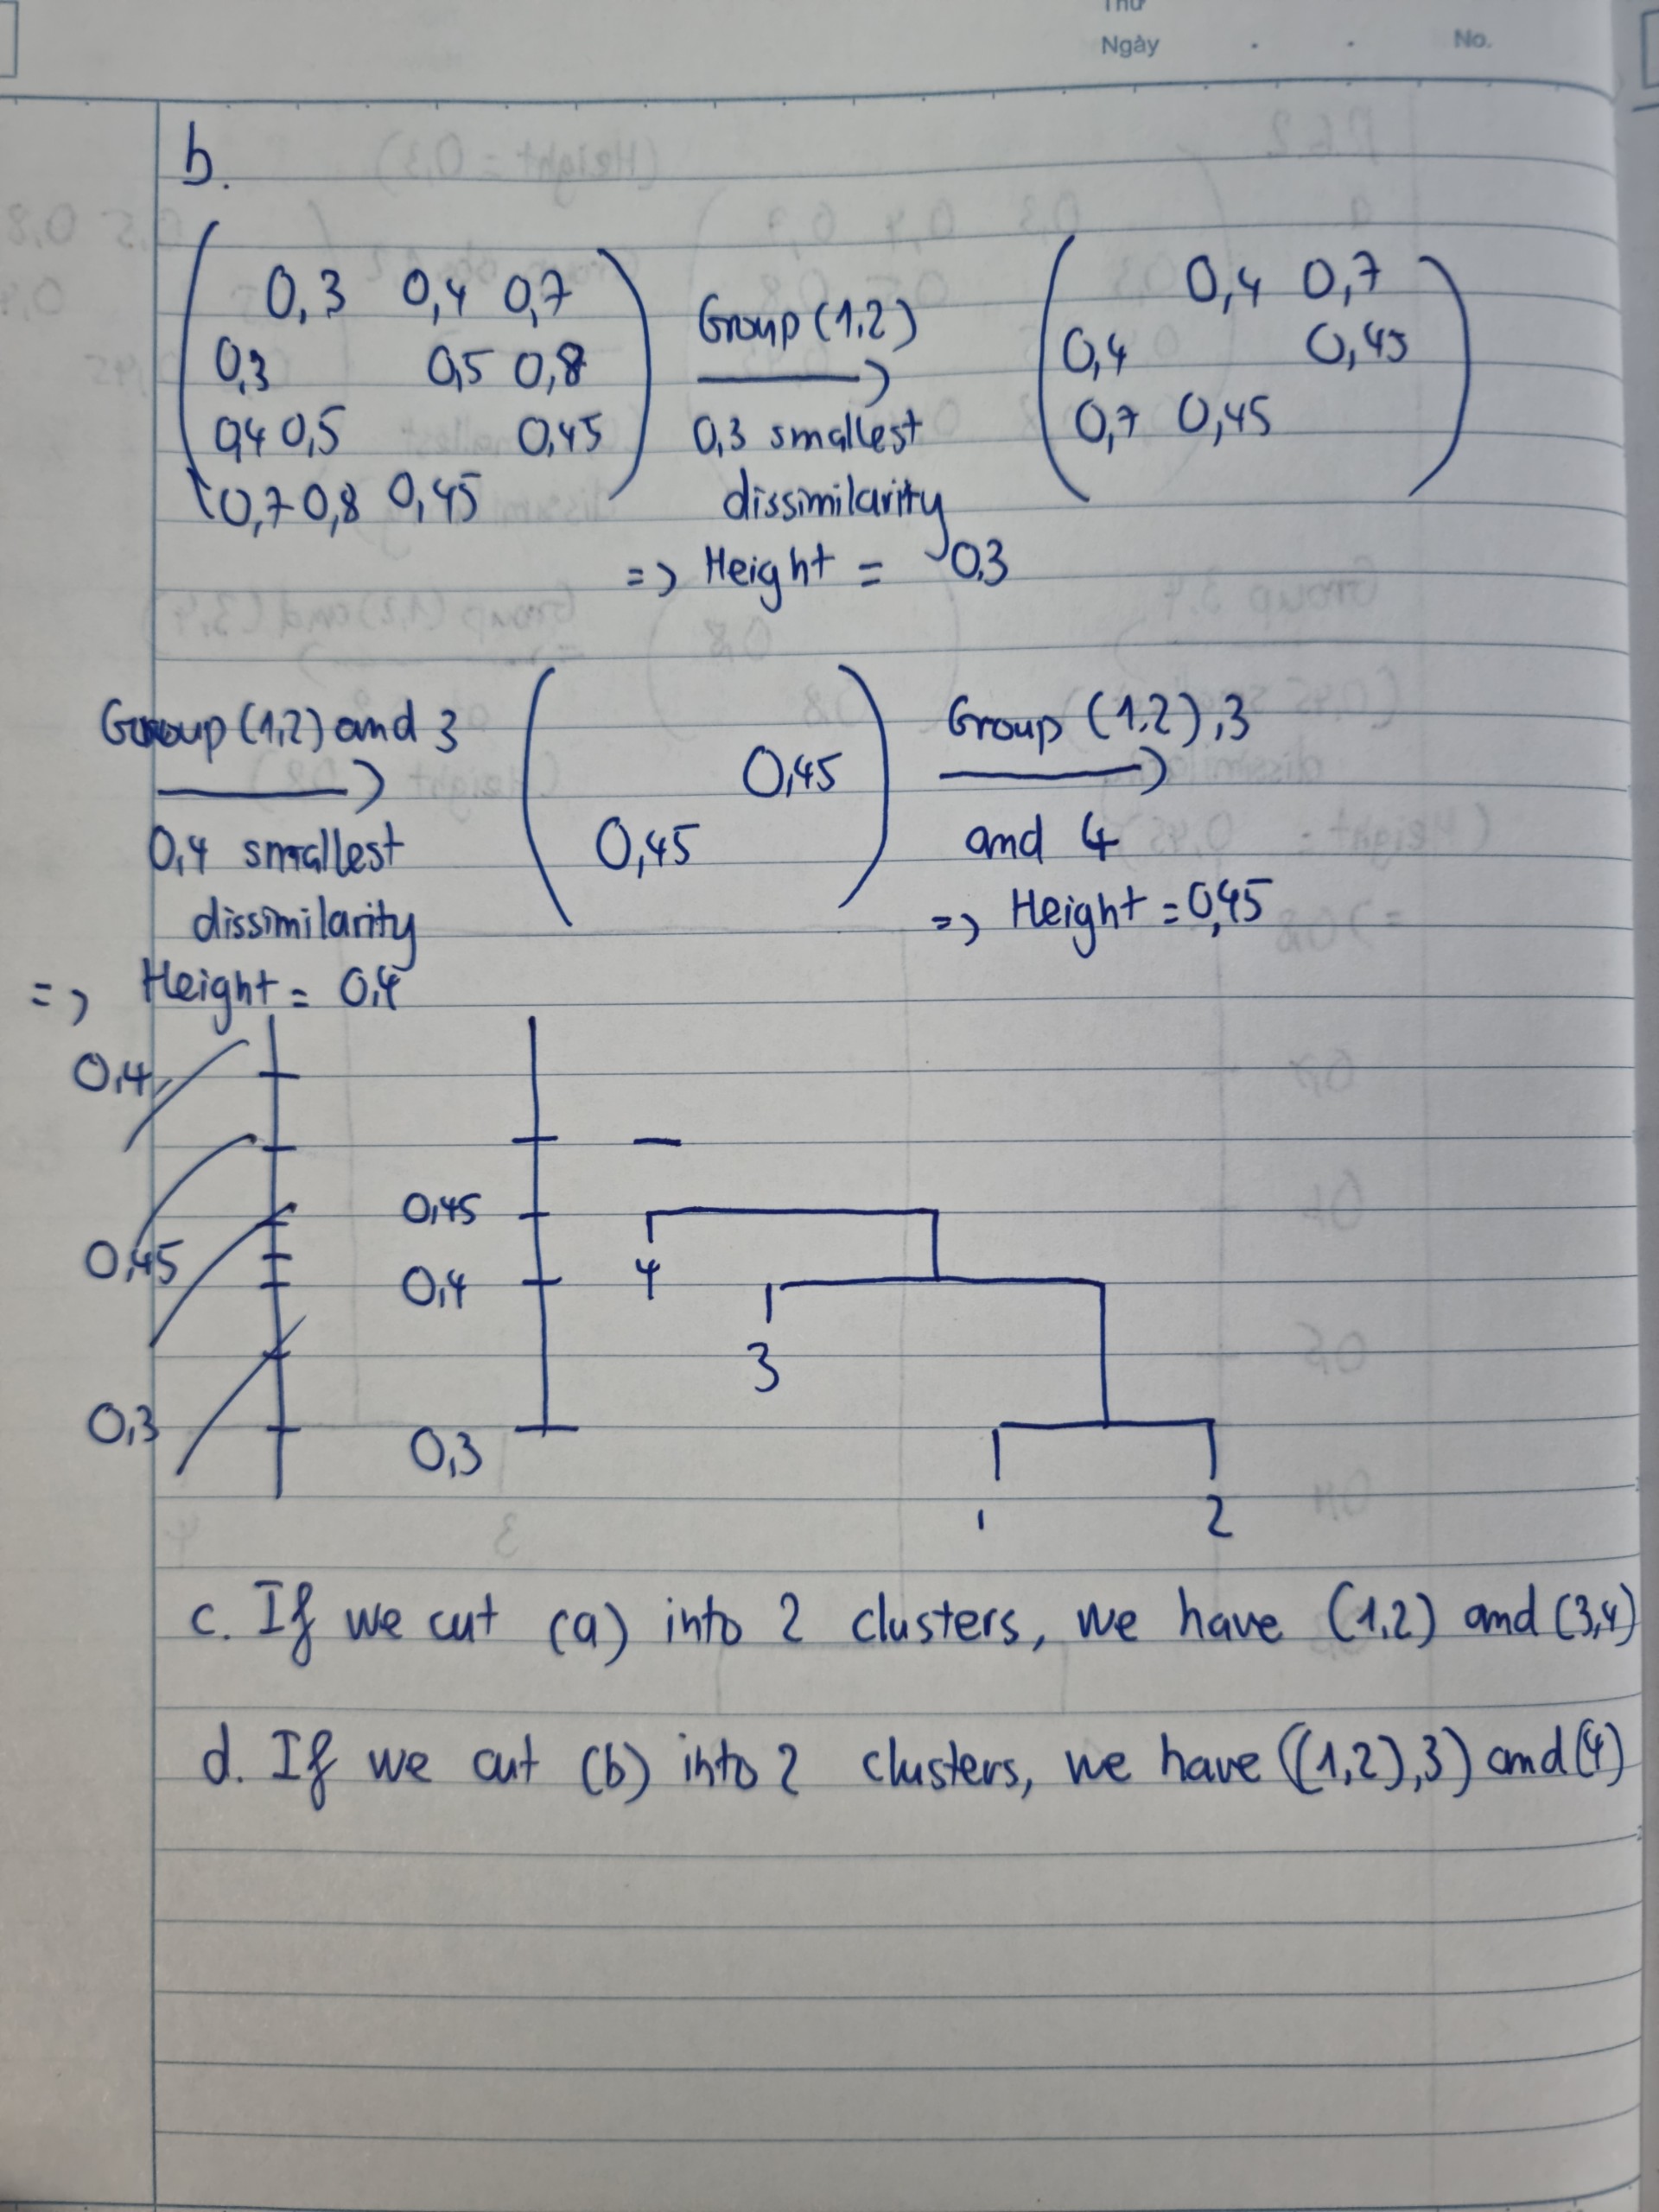 Thứ
Ngày . . No.
b.
0,3 0,4 0,7
0,3 0,5 0,8
0,4 0,5 0,45
0,7 0,8 0,45
Group (1,2)
0,3 smallest
dissimilarity
=> Height = 0,3
0,4 0,7
0,4 0,45
0,7 0,45
Group (1,2) and 3
0,4 smallest
dissimilarity
=> Height = 0,4
0,45
0,45
Group (1,2),3
and 4
=> Height = 0,45
0,4
0,45
0,3
0,45
0,4
0,3
4
3
1 2
c. If we cut (a) into 2 clusters, we have (1,2) and (3,4)
d. If we cut (b) into 2 clusters, we have ((1,2),3) and (4)